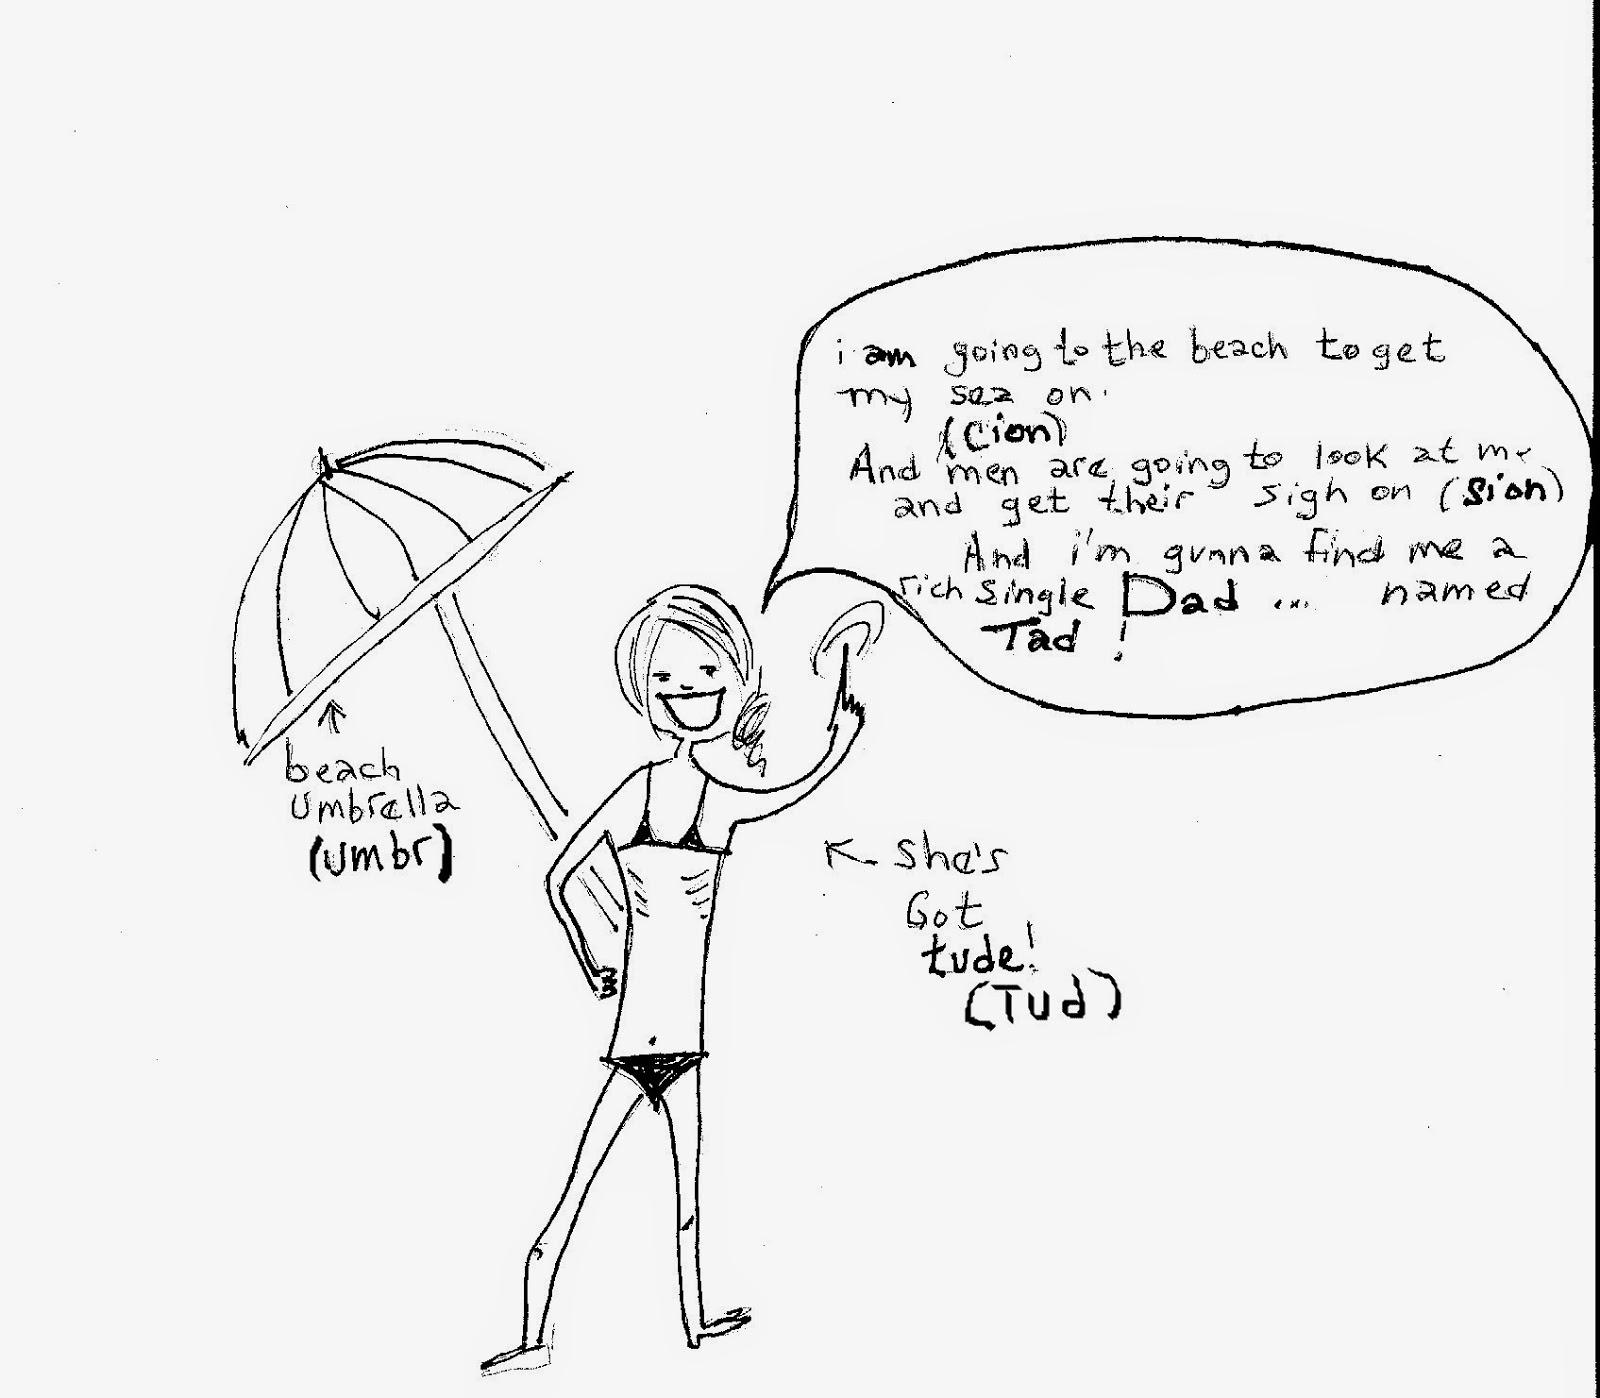 i am going to the beach to get
my sea on.
(Cion)
And men are going to look at me
and get their sigh on (Sion)
And i'm gunna find me a
rich single Dad ... named
Tad !
beach
umbrella
(umbr)
she's
Got
tude!
(Tud)